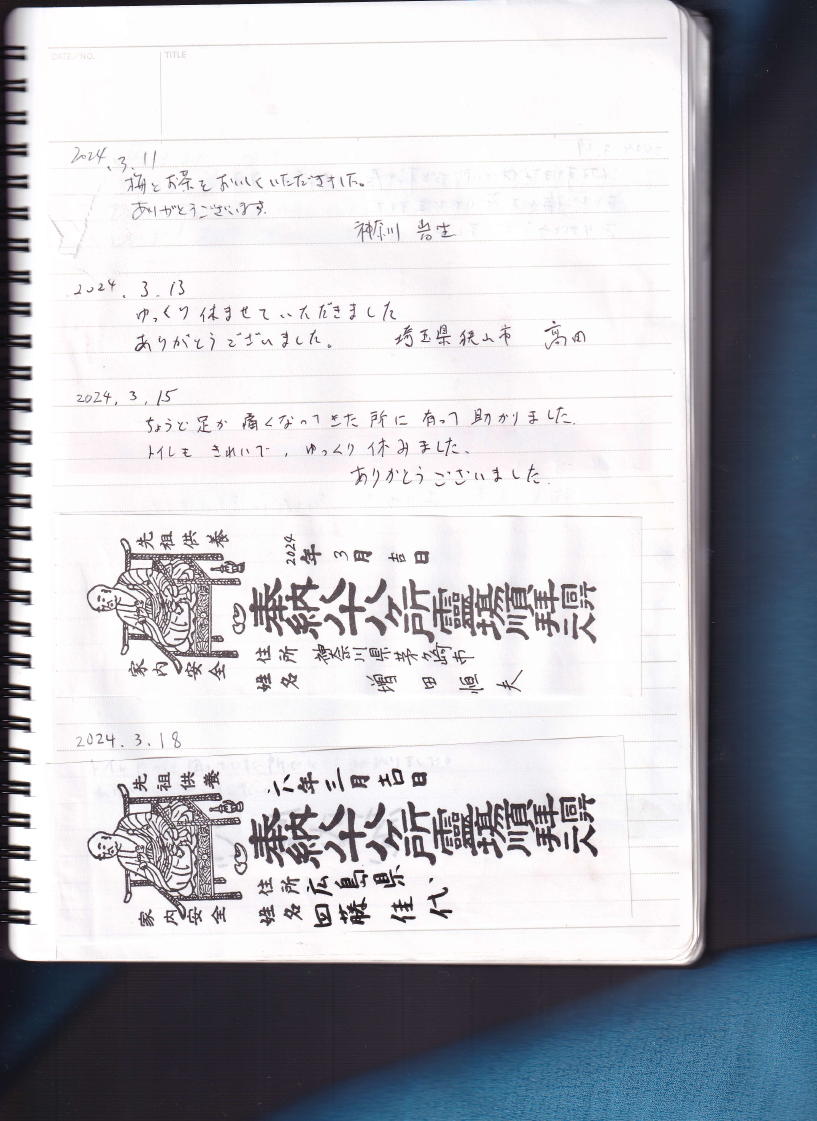 DATE/NO.
TITLE
2024.3.11
梅とお茶をおいしくいただきました。
ありがとうございます.
神奈川 岩生
2024.3.13
ゆっくり休ませていただきました
ありがとうございました。 埼玉県狭山市 高田
2024.3.15
ちょうど足が痛くなってきた所に有って助かりました.
トイレもきれいで、ゆっくり休みました、
ありがとうございました.
先祖供養
家内安全
2024年3月吉日
奉納八十八ヶ所霊場順拝
同行二人
住所 神奈川県茅ヶ崎市
姓名 増田恒夫
2024.3.18
先祖供養
家内安全
六年三月吉日
奉納八十八ヶ所霊場順拝
同行二人
住所 広島県、
姓名 藤佳代